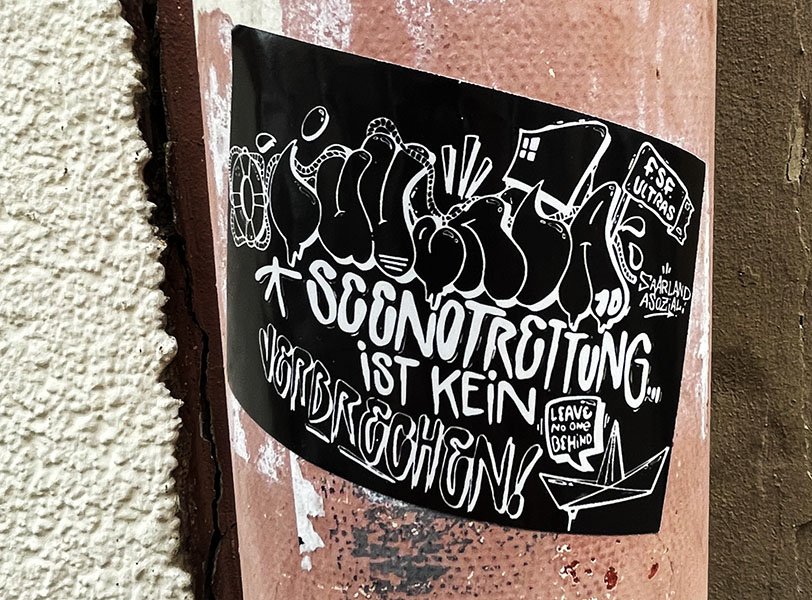 FSF
ULTRAS
SAARLAND
ASOZIAL!
SEENOTRETTUNG...
IST KEIN
VERBRECHEN!
LEAVE
NO ONE
BEHIND